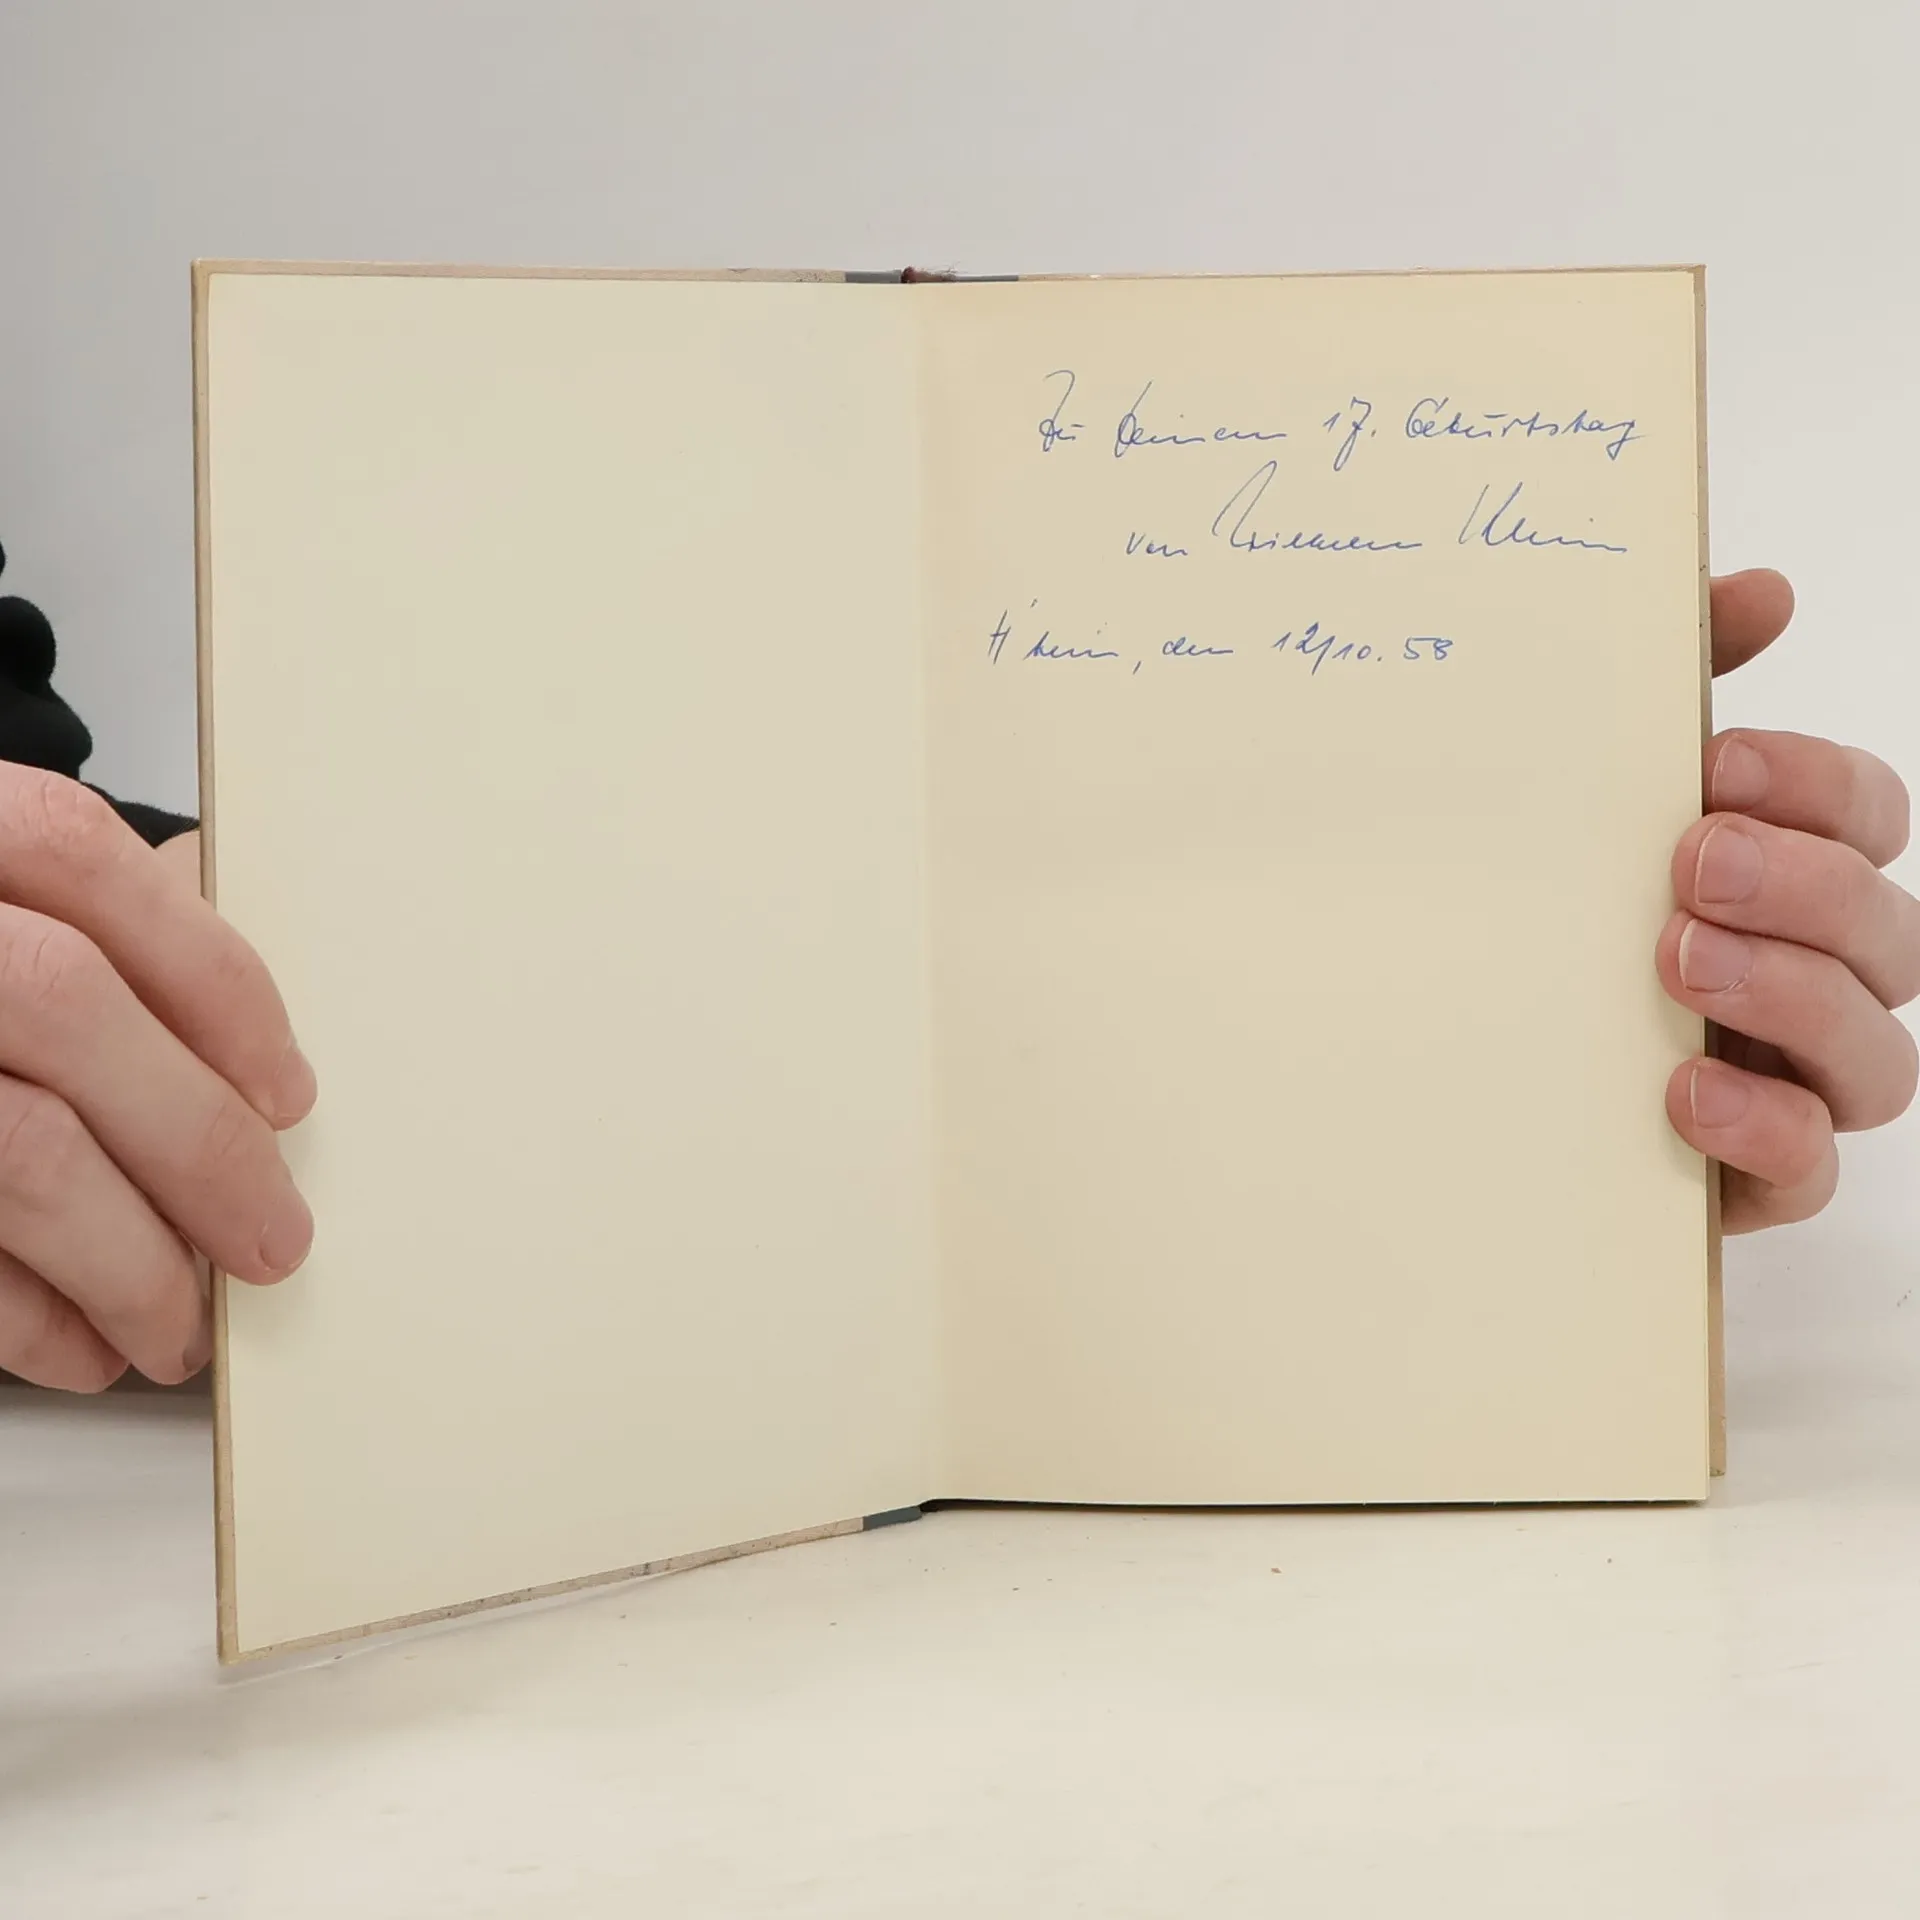 Zu Deinem 17. Geburtstag
von Wilhelm Klein
H'heim, den 12/10. 58